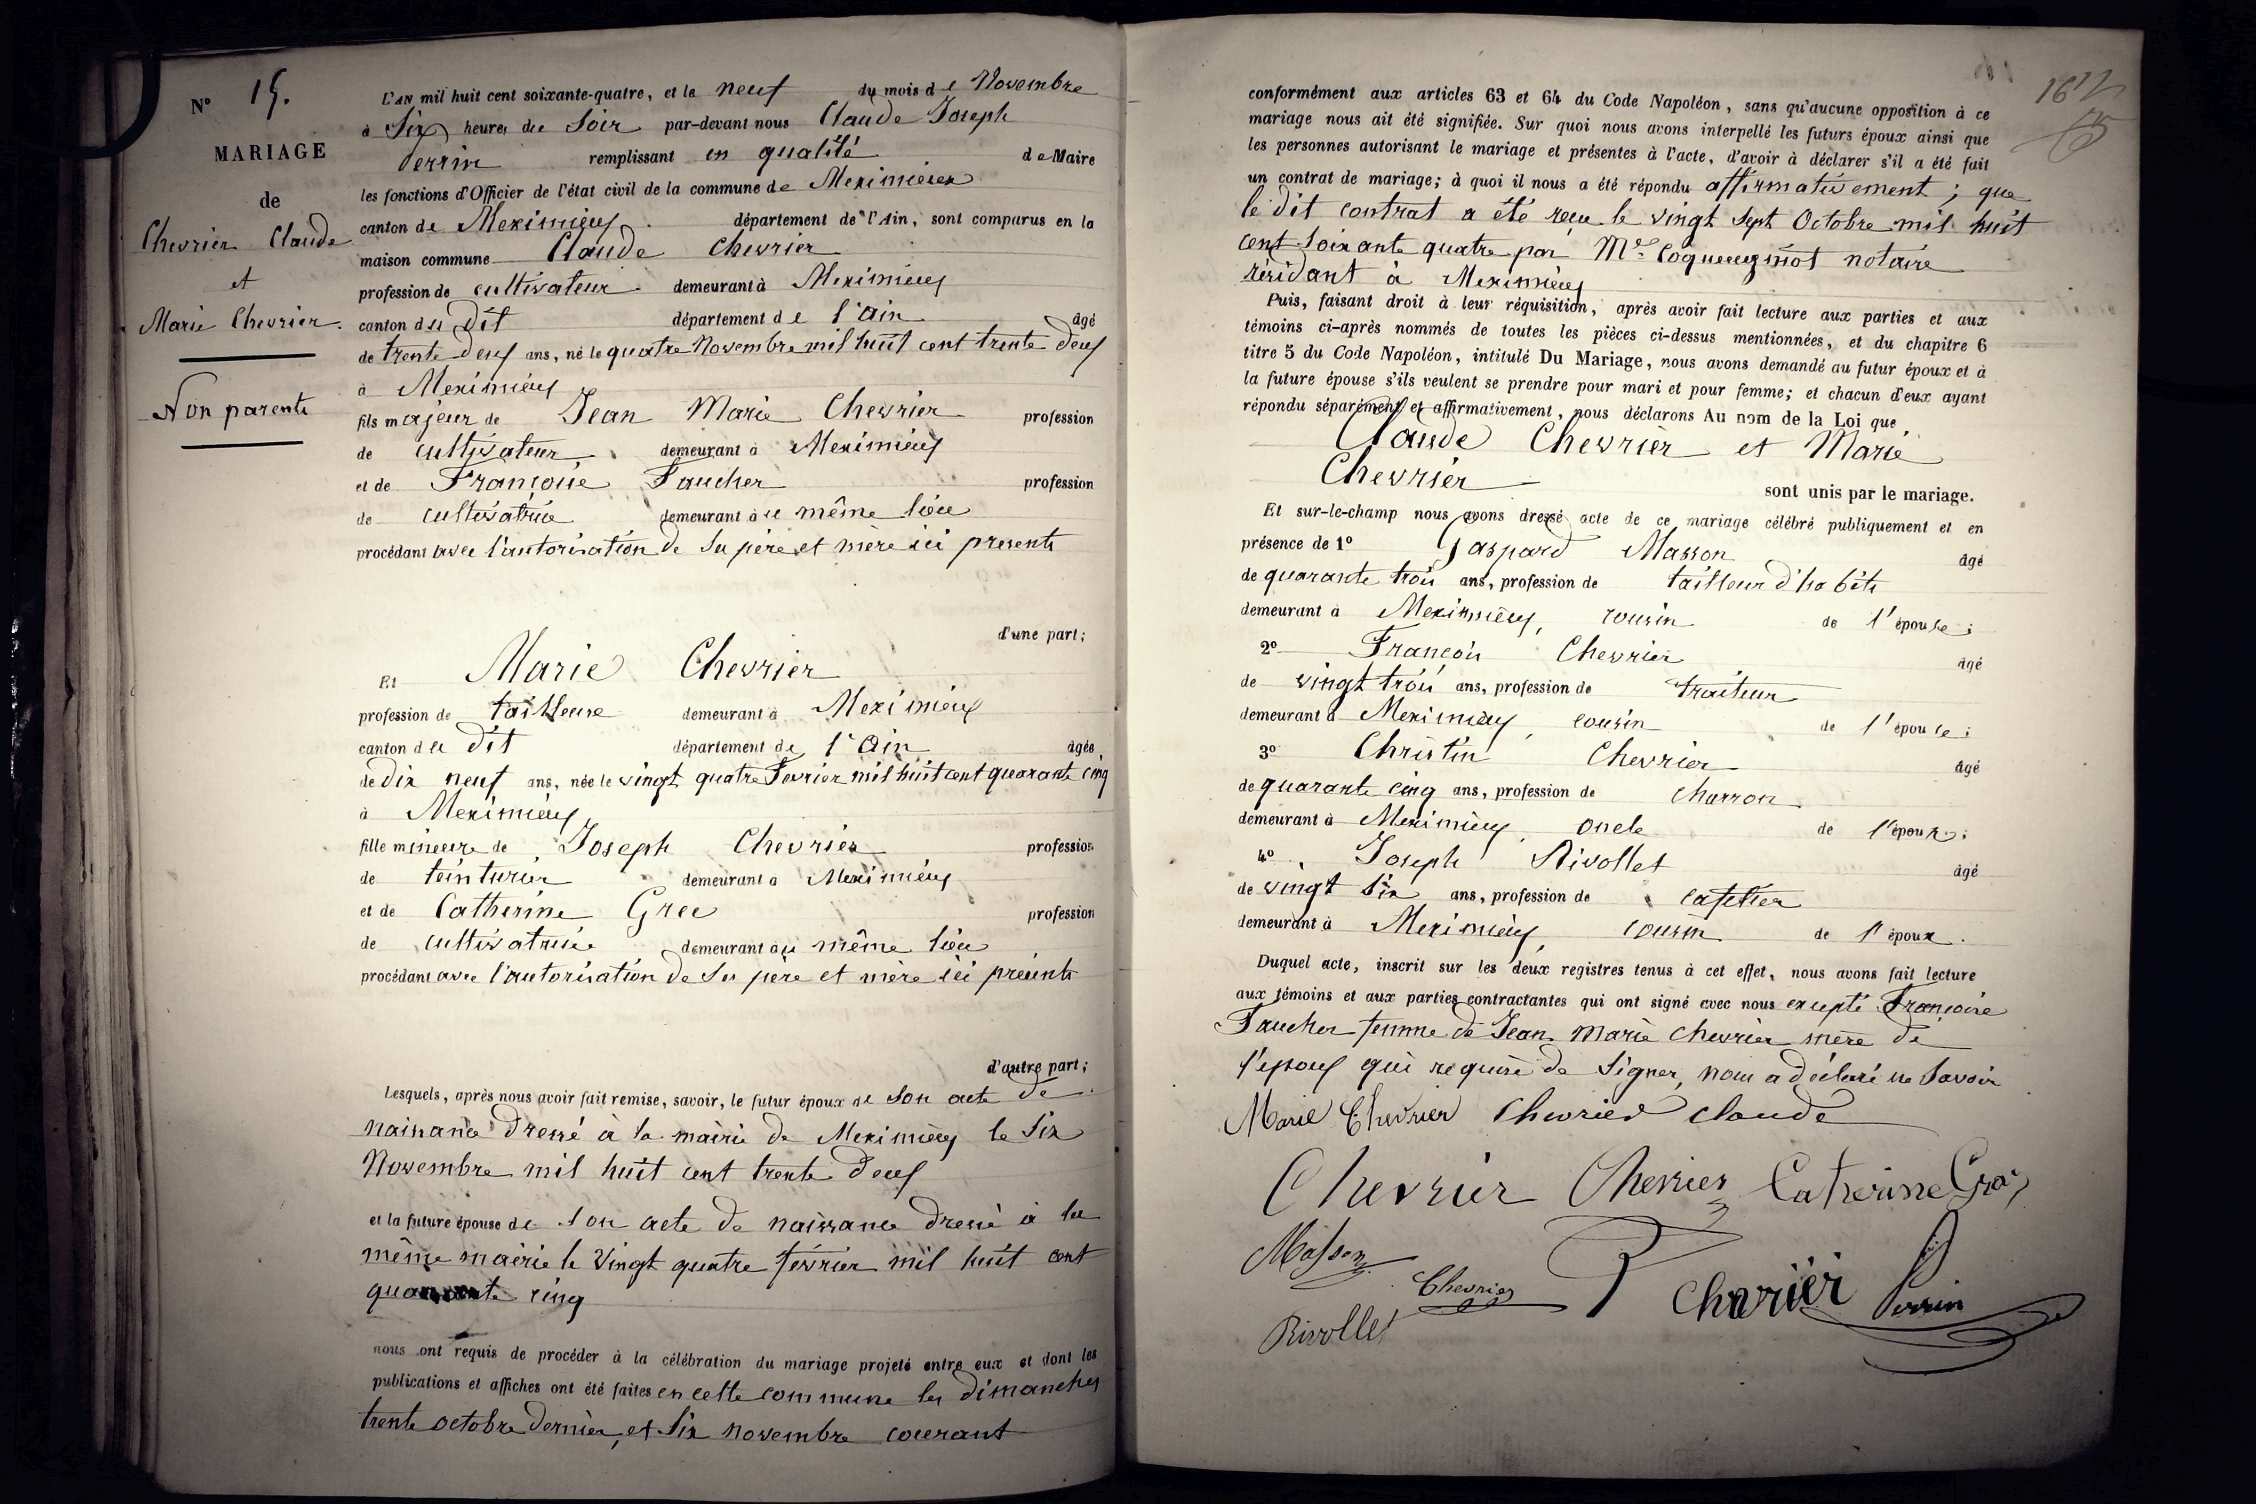 N° 15.
MARIAGE
de
Chevrier Claude
et
Marie Chevrier.
Non parents
L'AN mil huit cent soixante-quatre, et le neuf du mois de Novembre
à Six heures du Soir par-devant nous Claude Joseph
Perrin remplissant en qualité de Maire
les fonctions d'Officier de l'état civil de la commune de Meximieux
canton de Meximieux département de l'Ain, sont comparus en la
maison commune Claude Chevrier
profession de cultivateur demeurant à Meximieux
canton du dit département de l'Ain âgé
de trente deux ans, né le quatre Novembre mil huit cent trente deux
à Meximieux
fils majeur de Jean Marie Chevrier profession
de cultivateur demeurant à Meximieux
et de Françoise Faucher profession
de cultivatrice demeurant au même lieu
procédant avec l'autorisation de ses père et mère ici présents
d'une part;
Et Marie Chevrier
profession de tailleuse demeurant à Meximieux
canton du dit département de l'Ain âgée
de dix neuf ans, née le vingt quatre Fevrier mil huit cent quarante cinq
à Meximieux
fille mineure de Joseph Chevrier profession
de teinturier demeurant à Meximieux
et de Catherine profession
de cultivatrice demeurant au même lieu
procédant avec l'autorisation de ses père et mère ici présents
d'autre part;
Lesquels, après nous avoir fait remise, savoir, le futur époux de son acte de
naissance dressé à la mairie de Meximieux le Six
Novembre mil huit cent trente deux
et la future épouse de son acte de naissance dressé à la
même mairie le vingt quatre février mil huit cent
quarante cinq
nous ont requis de procéder à la célébration du mariage projeté entre eux et dont les
publications et affiches ont été faites en cette commune les dimanches
trente octobre dernier, et Six novembre courant
conformément aux articles 63 et 64 du Code Napoléon, sans qu'aucune opposition à ce
mariage nous ait été signifiée. Sur quoi nous avons interpellé les futurs époux ainsi que
les personnes autorisant le mariage et présentes à l'acte, d'avoir à déclarer s'il a été fait
un contrat de mariage; à quoi il nous a été répondu affirmativement; que
le dit contrat a été reçu le vingt sept Octobre mil huit
cent soixante quatre par Me notaire
résidant à Meximieux
Puis, faisant droit à leur réquisition, après avoir fait lecture aux parties et aux
témoins ci-après nommés de toutes les pièces ci-dessus mentionnées, et du chapitre 6
titre 5 du Code Napoléon, intitulé Du Mariage, nous avons demandé au futur époux et à
la future épouse s'ils veulent se prendre pour mari et pour femme; et chacun d'eux ayant
répondu séparément et affirmativement, nous déclarons Au nom de la Loi que
Claude Chevrier et Marie
Chevrier
sont unis par le mariage.
Et sur-le-champ nous avons dressé acte de ce mariage célébré publiquement et en
présence de 1° Gaspard Masson âgé
de quarante trois ans, profession de tailleur d'habits
demeurant à Meximieux, cousin de l'épouse;
2° François Chevrier âgé
de vingt trois ans, profession de traiteur
demeurant à Meximieux, cousin de l'épouse;
3° Christin Chevrier âgé
de quarante cinq ans, profession de charron
demeurant à Meximieux, oncle de l'époux;
4° Joseph Rivollet âgé
de vingt six ans, profession de cafetier
demeurant à Meximieux, cousin de l'époux.
Duquel acte, inscrit sur les deux registres tenus à cet effet, nous avons fait lecture
aux témoins et aux parties contractantes qui ont signé avec nous excepté Françoise
Faucher femme de Jean Marie Chevrier mère de
l'époux qui requise de signer, nous a déclaré ne savoir
Marie Chevrier Chevrier Claude
Chevrier Chevrier Catherine
Masson Chevrier Chevrier Perrin
Rivollet